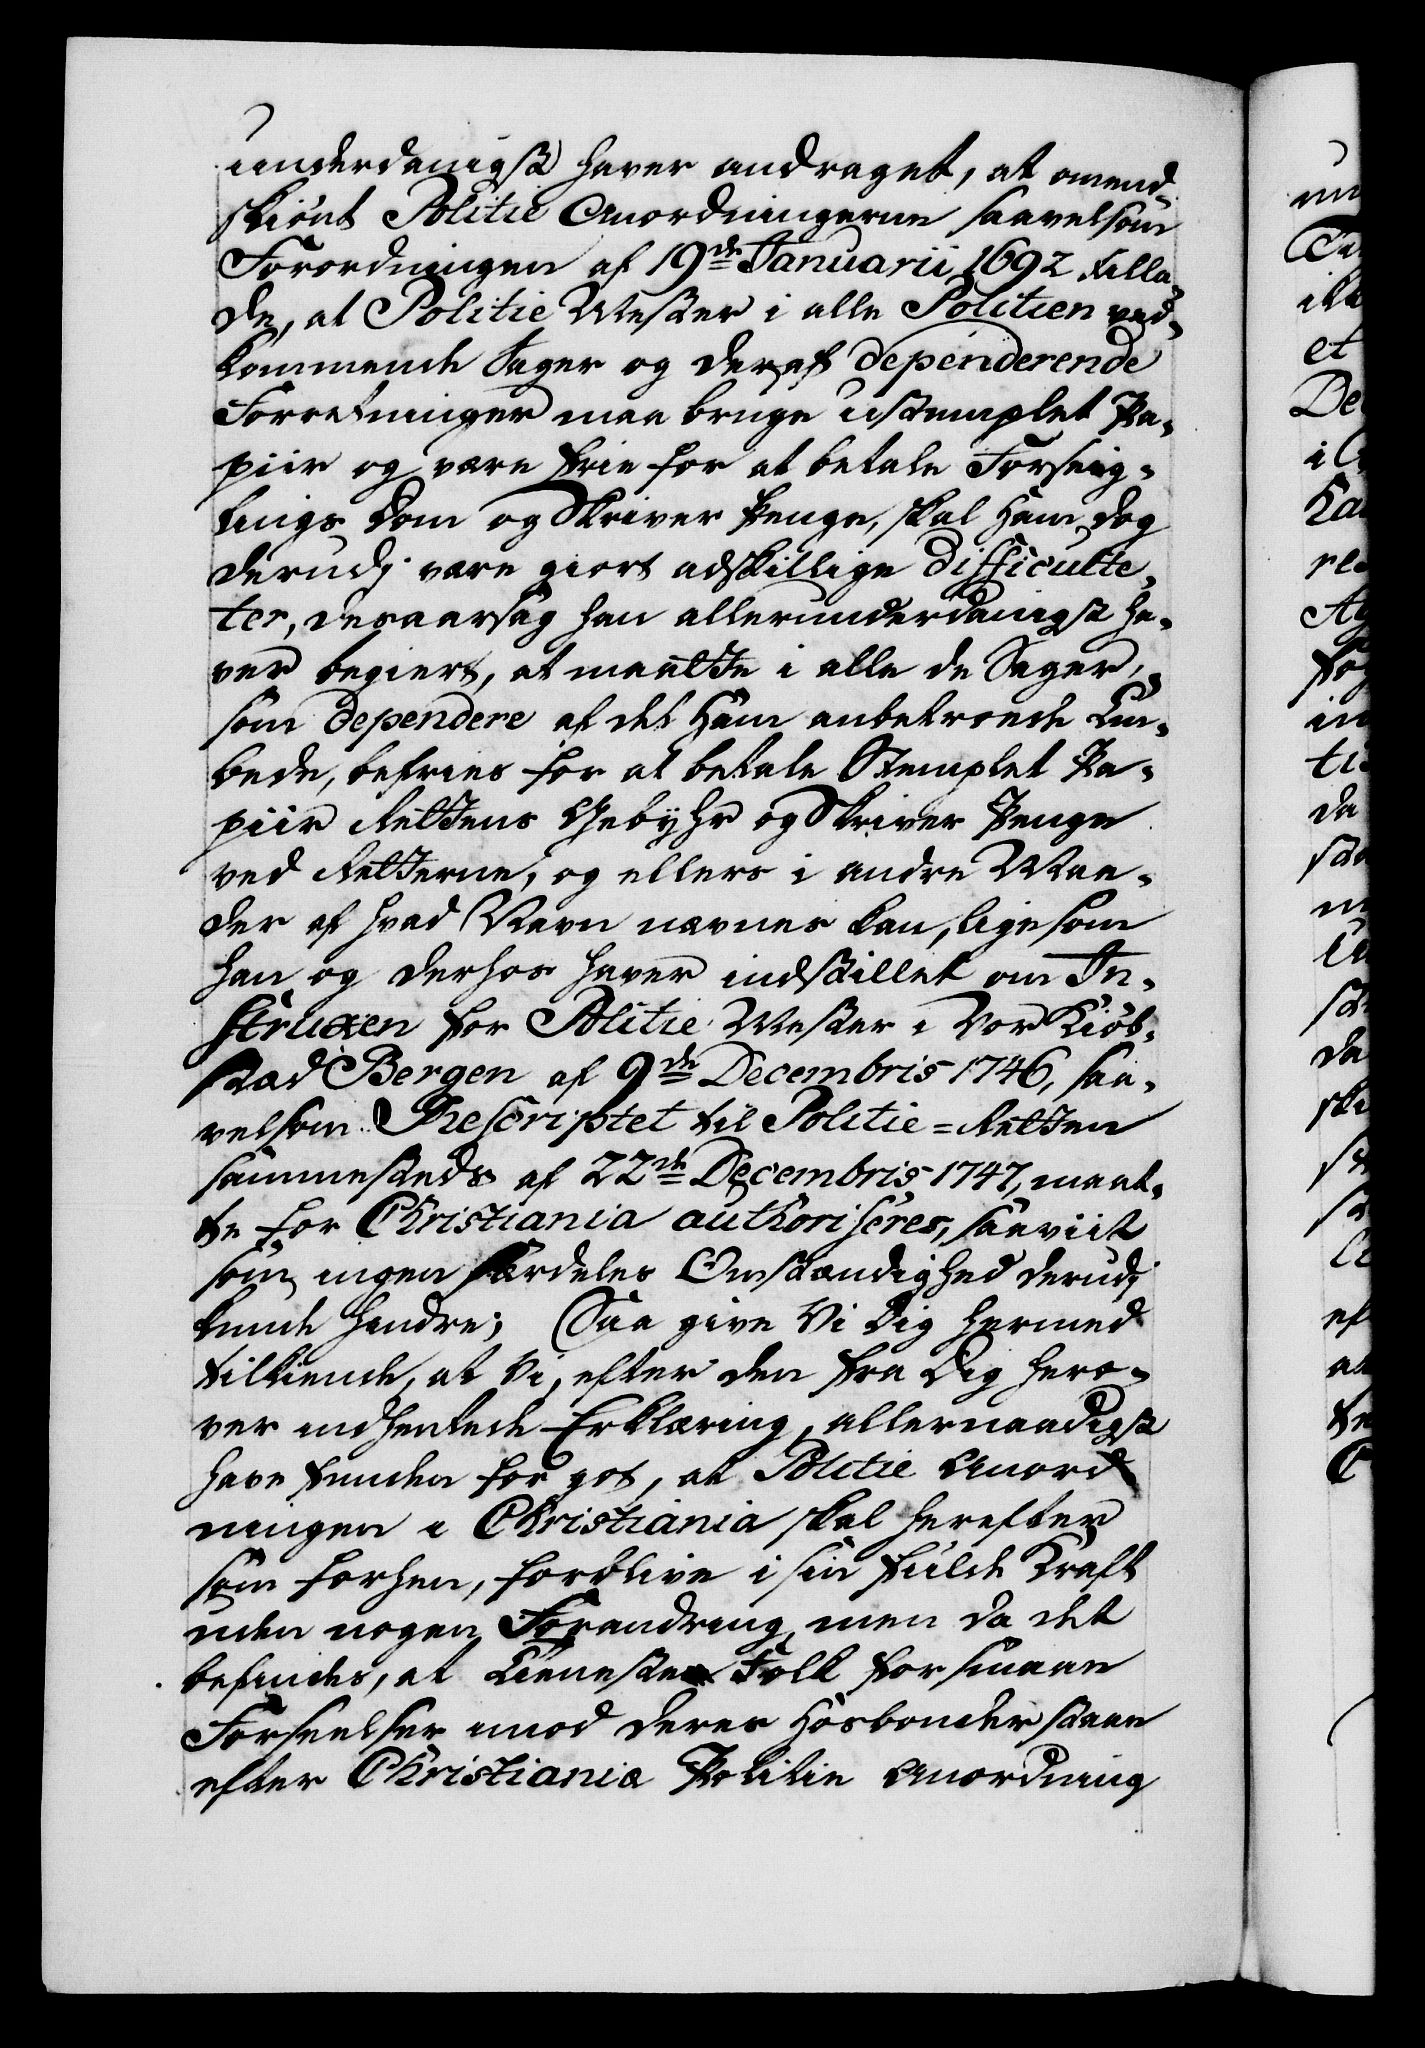 underdanigst haver andraget, at omend-
skiönt Politie Anordningerne saavelsom
Forordningen af 19de Januarii 1692 tilla-
de, at Politie Mester i alle Politien ved-
kommende Sager og deraf dependerende
Forretninger maa bruge ustemplet Pa-
piir og være frie for at betale Forseig-
lings Dom og Skriver Penge, skal Ham dog
derudj være giort adskillige difficulte-
ter, desaarsag han allerunderdanigst ha-
ver begiert, at maatte i alle de Sager,
som dependere af det Ham anbetroede Em-
bede, befries for at betale Stemplet Pa-
piir Rettens Gebyhr og Skriver Penge
ved Retterne, og ellers i andre Maa-
der af hvad Navn nævnes kan, ligesom
han og derhos haver indstillet om In-
struxen for Politie Mester i Vor Kiöb-
stad Bergen af 9de Decembris 1746, saa-
velsom Rescriptet til Politie-Retten
sammesteds af 22de Decembris 1747, maat-
te for Christiania authoriseres, saaviit
som ingen særdeles Omstændighed derudj
kunde hindre; Saa give Vi Dig hermed
tilkiende, at Vi, efter den fra Dig hero-
ver indhentede Erklæring, allernaadigst
have funden for got, at Politie Anord
ningen i Christiania skal herefter
som forhen, forblive i sin fulde Kraft
uden nogen Forandring, men da det
befindes, at Tieneste Folk for smaae
Forseelser imod deres Hosbonder staae
efter Christiania Politie Anordning